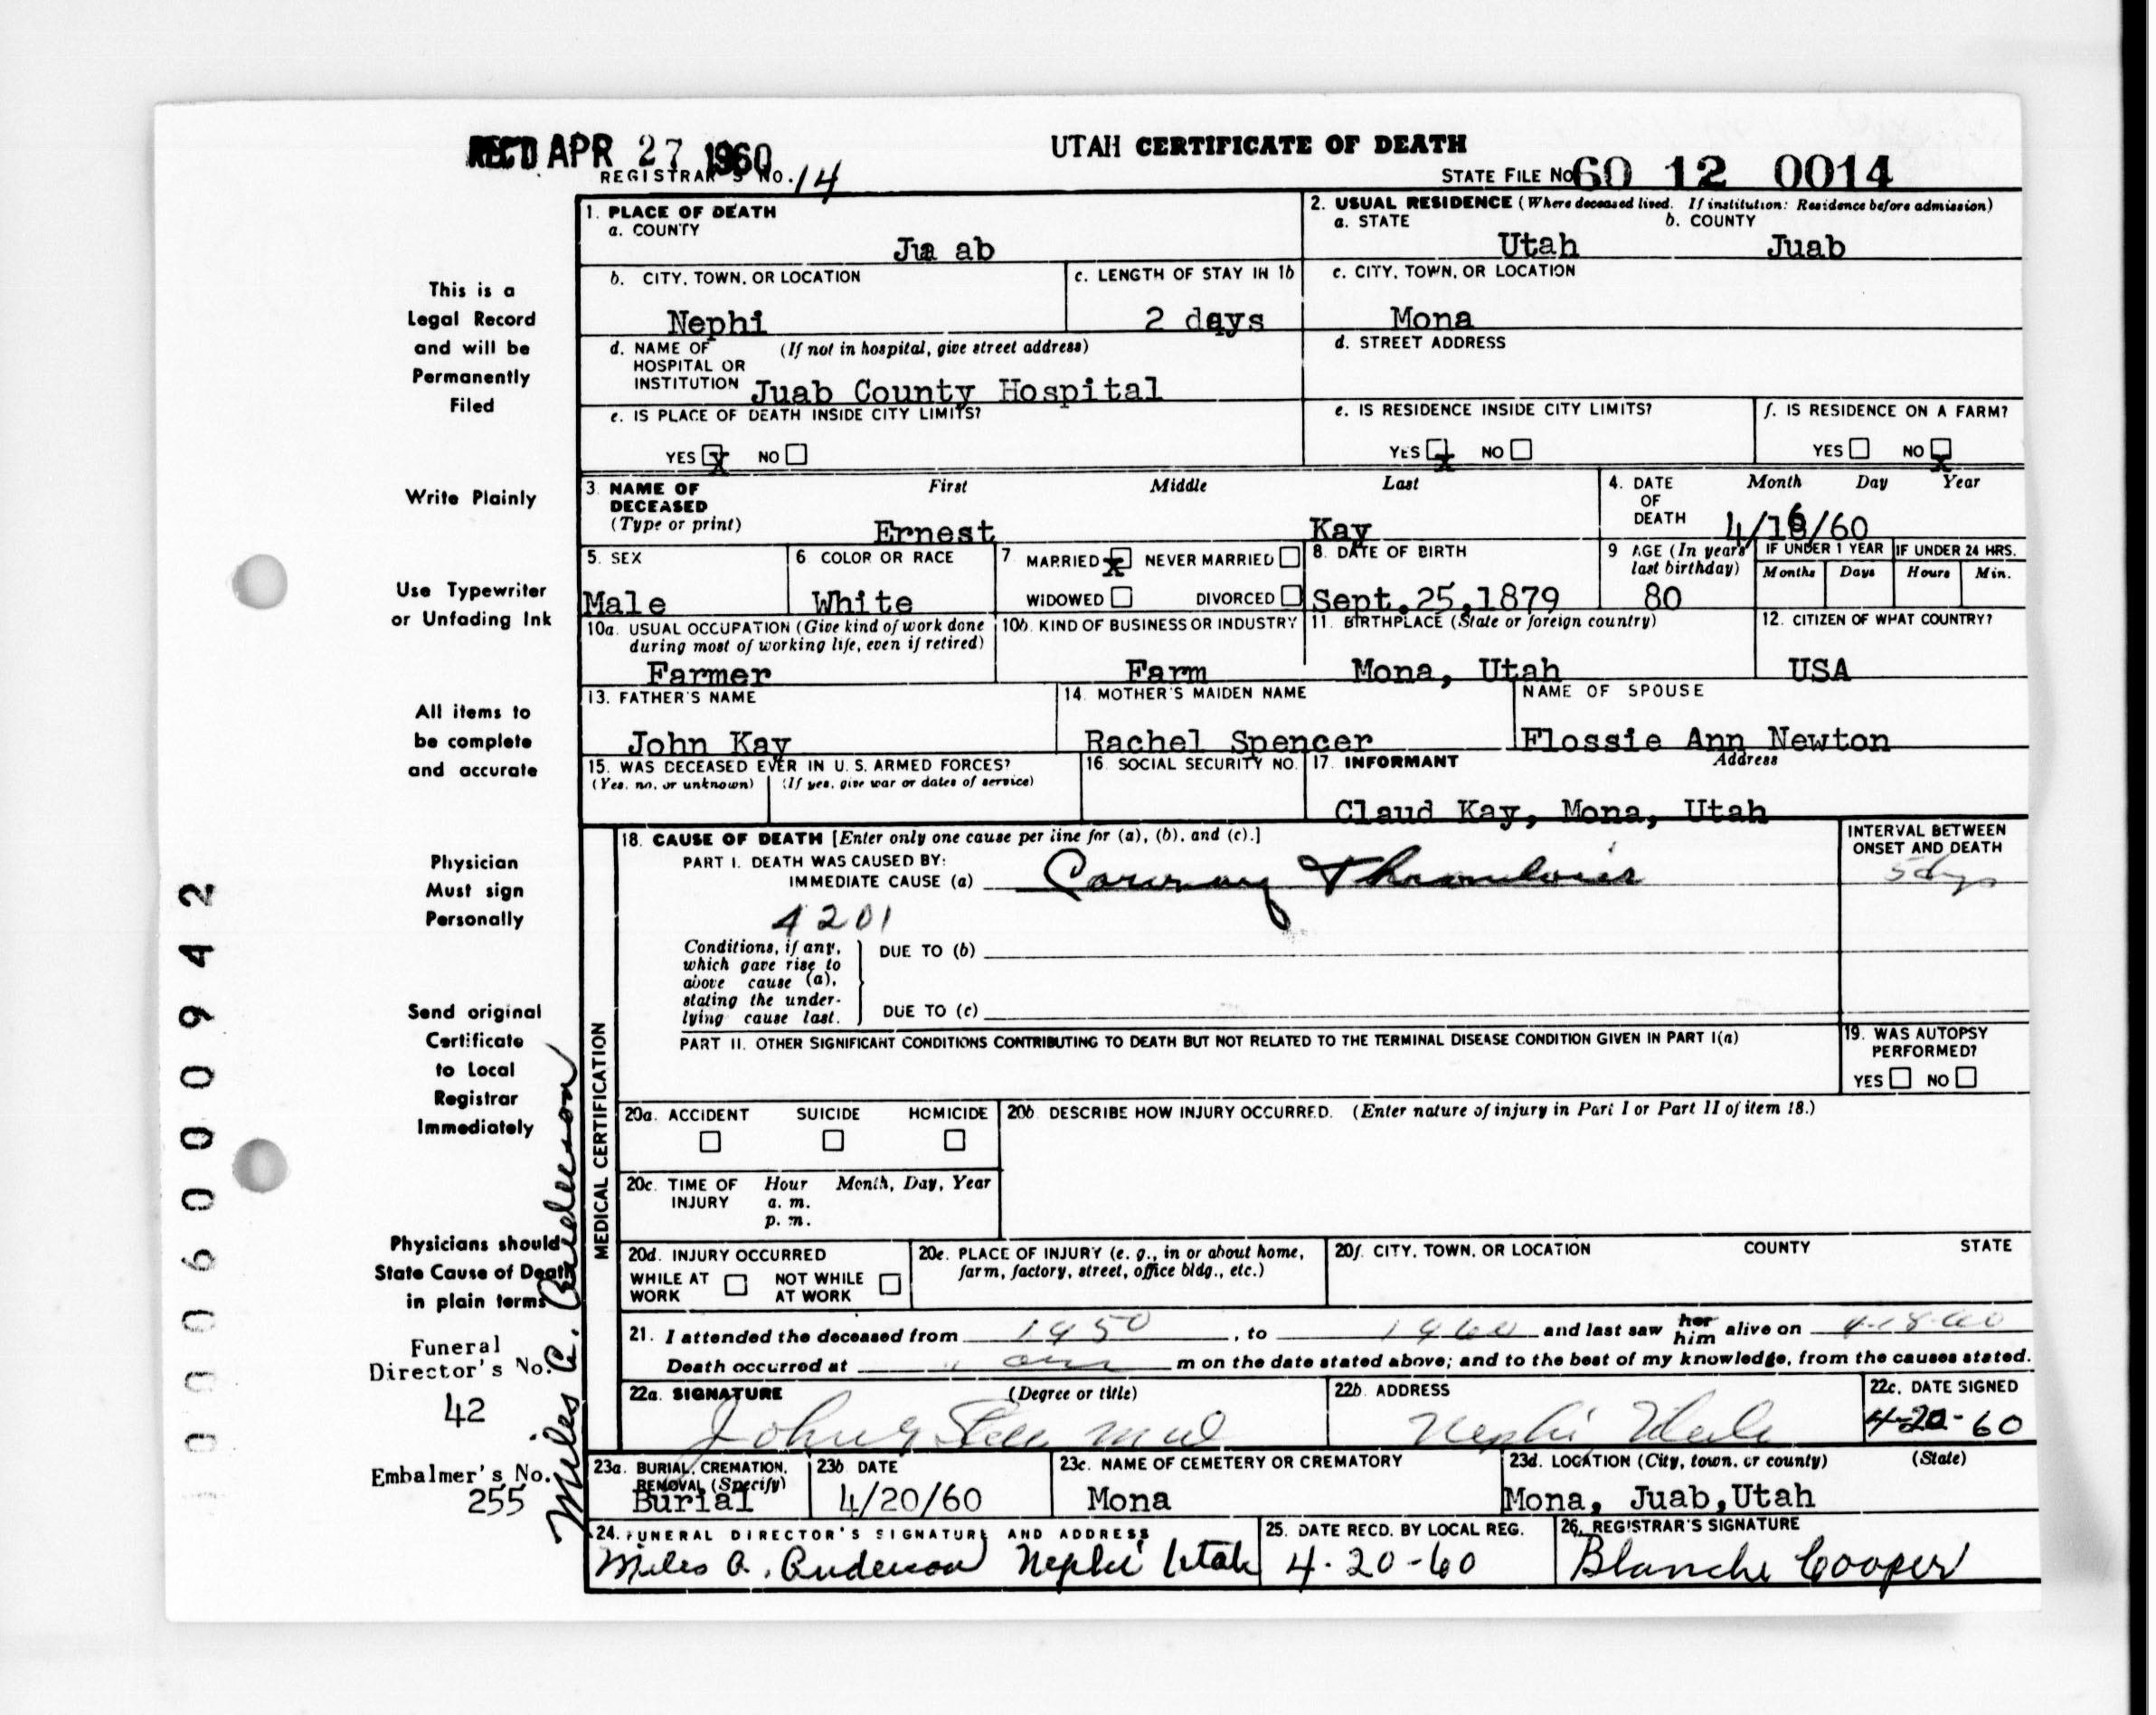 REC'D APR 27 1960
UTAH CERTIFICATE OF DEATH
REGISTRAR'S No. 14
STATE FILE No. 60 12 0014
This is a
Legal Record
and will be
Permanently
Filed
Write Plainly
Use Typewriter
or Unfading Ink
All items to
be complete
and accurate
Physician
Must sign
Personally
Send original
Certificate
to Local
Registrar
Immediately
Physicians should
State Cause of Death
in plain terms
Funeral
Director's No.
42
Embalmer's No.
255
Miles A. Anderson
000600942
1. PLACE OF DEATH
a. COUNTY
Jua ab
2. USUAL RESIDENCE (Where deceased lived. If institution: Residence before admission)
a. STATE b. COUNTY
Utah Juab
b. CITY, TOWN, OR LOCATION
Nephi
c. LENGTH OF STAY IN 1b
2 days
c. CITY, TOWN, OR LOCATION
Mona
d. NAME OF (If not in hospital, give street address)
HOSPITAL OR
INSTITUTION Juab County Hospital
d. STREET ADDRESS
e. IS PLACE OF DEATH INSIDE CITY LIMITS?
YES X NO
e. IS RESIDENCE INSIDE CITY LIMITS?
YES X NO
f. IS RESIDENCE ON A FARM?
YES NO X
3. NAME OF DECEASED
(Type or print)
First Middle Last
Ernest Kay
4. DATE OF DEATH
Month Day Year
4/18/60
5. SEX
Male
6. COLOR OR RACE
White
7. MARRIED X NEVER MARRIED
WIDOWED DIVORCED
8. DATE OF BIRTH
Sept.25,1879
9 AGE (In years last birthday)
80
IF UNDER 1 YEAR IF UNDER 24 HRS.
Months Days Hours Min.
10a. USUAL OCCUPATION (Give kind of work done
during most of working life, even if retired)
Farmer
10b. KIND OF BUSINESS OR INDUSTRY
Farm
11. BIRTHPLACE (State or foreign country)
Mona, Utah
12. CITIZEN OF WHAT COUNTRY?
USA
13. FATHER'S NAME
John Kay
14. MOTHER'S MAIDEN NAME
Rachel Spencer
NAME OF SPOUSE
Flossie Ann Newton
15. WAS DECEASED EVER IN U. S. ARMED FORCES?
(Yes, no, or unknown) (If yes, give war or dates of service)
16. SOCIAL SECURITY NO.
17. INFORMANT Address
Claud Kay, Mona, Utah
MEDICAL CERTIFICATION
18. CAUSE OF DEATH [Enter only one cause per line for (a), (b), and (c).]
PART I. DEATH WAS CAUSED BY:
IMMEDIATE CAUSE (a) Coronary Thrombosis
INTERVAL BETWEEN
ONSET AND DEATH
5 dys
4201
Conditions, if any,
which gave rise to
above cause (a),
stating the under-
lying cause last.
DUE TO (b)
DUE TO (c)
PART II. OTHER SIGNIFICANT CONDITIONS CONTRIBUTING TO DEATH BUT NOT RELATED TO THE TERMINAL DISEASE CONDITION GIVEN IN PART I(a)
19. WAS AUTOPSY
PERFORMED?
YES NO
20a. ACCIDENT SUICIDE HOMICIDE
20b. DESCRIBE HOW INJURY OCCURRED. (Enter nature of injury in Part I or Part II of item 18.)
20c. TIME OF INJURY Hour Month, Day, Year
a. m.
p. m.
20d. INJURY OCCURRED
WHILE AT WORK NOT WHILE AT WORK
20e. PLACE OF INJURY (e. g., in or about home,
farm, factory, street, office bldg., etc.)
20f. CITY, TOWN, OR LOCATION COUNTY STATE
21. I attended the deceased from 1950, to 1960 and last saw her him alive on 4-18-60
Death occurred at m on the date stated above; and to the best of my knowledge, from the causes stated.
22a. SIGNATURE (Degree or title)
John
22b. ADDRESS
Nephi Utah
22c. DATE SIGNED
4-20-60
23a. BURIAL, CREMATION,
REMOVAL (Specify)
Burial
23b. DATE
4/20/60
23c. NAME OF CEMETERY OR CREMATORY
Mona
23d. LOCATION (City, town, or county) (State)
Mona, Juab,Utah
24. FUNERAL DIRECTOR'S SIGNATURE AND ADDRESS
Miles A. Anderson Nephi Utah
25. DATE RECD. BY LOCAL REG.
4-20-60
26. REGISTRAR'S SIGNATURE
Blanche Cooper